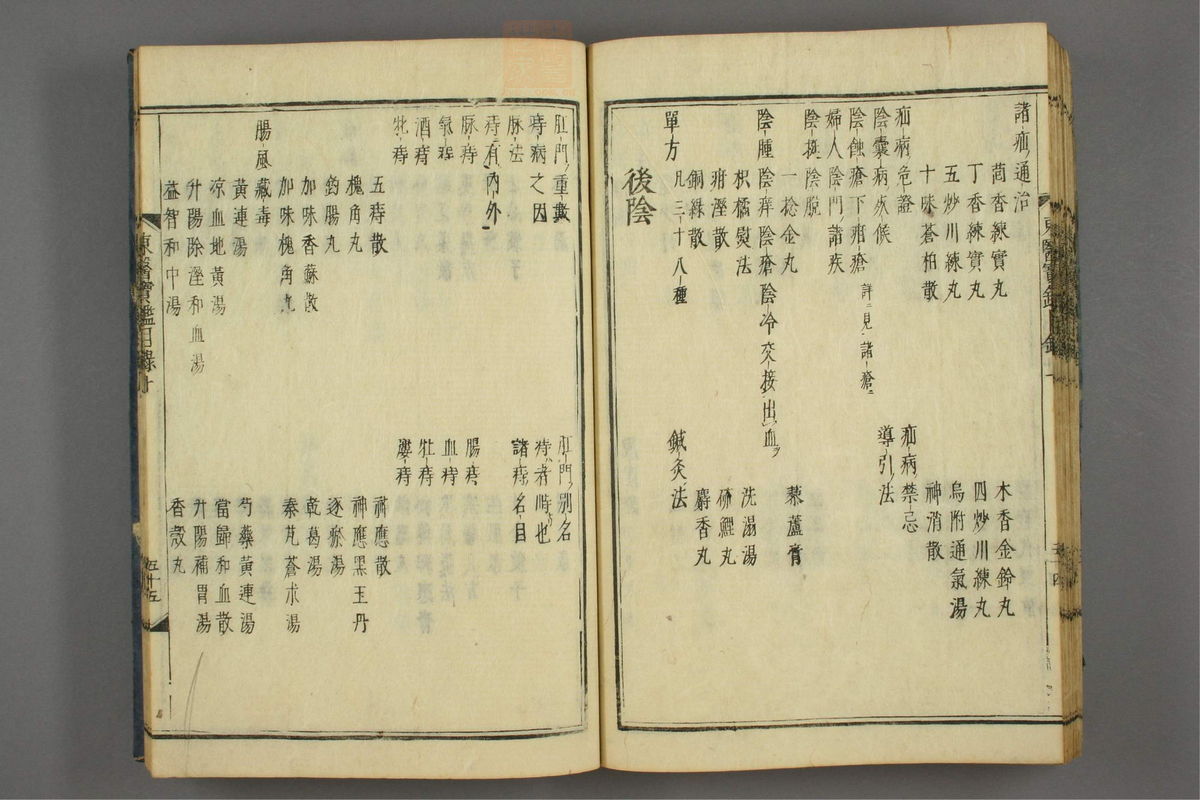 諸疝通治
茴香練實丸
木香金鈴丸
丁香練實丸
四炒川練丸
五炒川練丸
烏附通氣湯
十味蒼柏散
神消散
疝病危證
疝病禁忌
陰囊病族候
導引法
陰蝕瘡下疳瘡 詳見諸瘡
婦人陰門諸疾
陰挺陰脫
一捻金丸
藜蘆膏
陰腫陰痒陰瘡陰冷交接出血
枳橘熨法
洗溻湯
疳溼散
硇鯉丸
銅綠散
麝香丸
單方 凡三十八種
鍼灸法
後陰
肛門重數
肛門別名
痔病之因
痔者峙也
脉法
諸痔名目
痔有內外
脉痔
腸痔
氣痔
血痔
酒痔
牡痔
牝痔
瘻痔
五痔散
神應散
槐角丸
神應黑玉丹
鉤腸丸
逐瘀湯
加味香蘇散
乾葛湯
加味槐角丸
秦艽蒼朮湯
腸風藏毒
黃連湯
芍藥黃連湯
涼血地黃湯
當歸和血散
升陽除溼和血湯
升陽補胃湯
益智和中湯
香殼丸
東醫寶鑑目錄
五十五